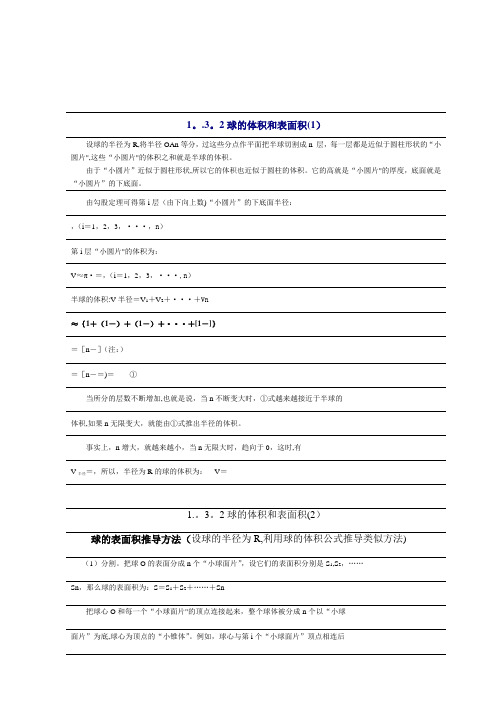 1。.3。2球的体积和表面积(1)
设球的半径为R,将半径OAn等分，过这些分点作平面把半球切割成n 层，每一层都是近似于圆柱形状的“小
圆片",这些“小圆片"的体积之和就是半球的体积。
由于“小圆片”近似于圆柱形状,所以它的体积也近似于圆柱的体积。它的高就是“小圆片"的厚度，底面就是
“小圆片”的下底面。
由勾股定理可得第i层（由下向上数)“小圆片”的下底面半径：
，(i＝1，2，3，···，n）
第i层“小圆片"的体积为：
V≈π·＝，（i＝1，2，3，···, n）
半球的体积:V半径＝V₁＋V₂＋···＋Vn
≈｛1＋（1—）＋（1—）＋···＋[1—]｝
＝［n－］（注：）
＝［n－＝)＝ ①
当所分的层数不断增加,也就是说，当n不断变大时，①式越来越接近于半球的
体积,如果n无限变大，就能由①式推出半径的体积。
事实上，n增大，就越来越小，当n无限大时，趋向于0，这时,有
V半径＝，所以，半径为R的球的体积为： V＝
1.。3。2球的体积和表面积(2）
球的表面积推导方法（设球的半径为R,利用球的体积公式推导类似方法)
（1）分割。把球O的表面分成n个“小球面片”，设它们的表面积分别是S₁,S₂，……
Sn，那么球的表面积为：S＝S₁＋S₂＋……＋Sn
把球心O和每一个“小球面片"的顶点连接起来，整个球体被分成n个以“小球
面片”为底,球心为顶点的“小锥体”。例如，球心与第i个“小球面片”顶点相连后